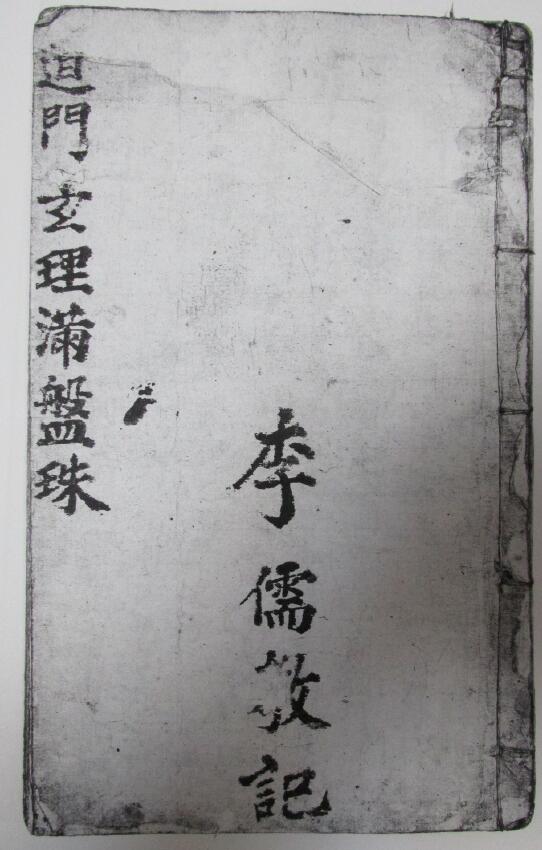 李儒記
門玄理滿盤珠